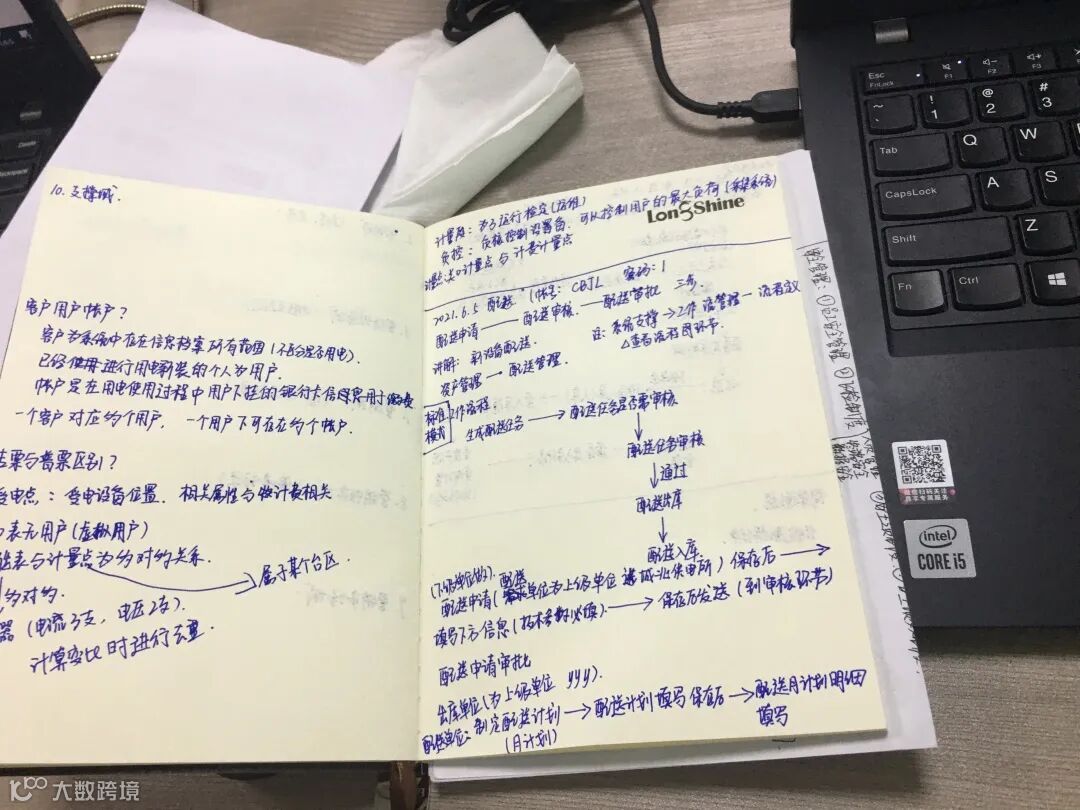 10. 支撑域.
客户用户帐户？
客户为系统中存在信息档案所有范围(不区分是否用电).
已经使用进行用电新装的个人为用户.
帐户是在用电使用过程中用户下挂的银行卡信息用于缴费
一个客户对应多个用户, 一个用户下可存在多个帐户.
票与普票区别？
受电点: 受电设备位置. 相关属性与做计费相关
表无用户(虚拟用户)
表与计量点为多对多关系.
属于某个台区.
多对多.
器(电流3支, 电压2支).
计算变比时进行去重
LongShine
计量段: 为了运行检定
负控: 负荷控制设备, 可以控制用户的最大负荷(采集系统)
关口计量点与计费计量点
2021.6.5 配送 帐号: CBJL 密码: 1
配送申请——配送审核——配送审批 三步
讲解: 新设备配送. 注: 系统支撑→工作流管理—流程定义
资产管理→配送管理. △查看流程图环节.
标准工作流程
模式
生成配送任务→配送任务是否需审核
配送任务审核
↓通过
配送出库
↓
配送入库.
(下级单位做). 配送
配送申请(需求单位为上级单位 城北供电所) 保存后→
填写下方信息(技术参数必填).→保存后发送(到审核环节)
配送申请审批
出库单位(为上级单位 yyy).
配送单位: 制定配送计划→配送计划填写保存后→配送月计划明细
(月计划)
填写
Esc
FnLock
F1
F2
F3
~
!
1
@
2
#
3
Tab
Q
W
CapsLock
A
S
Shift
Z
Fn
Ctrl
Delete
Backspace
intel
CORE i5
大数跨境